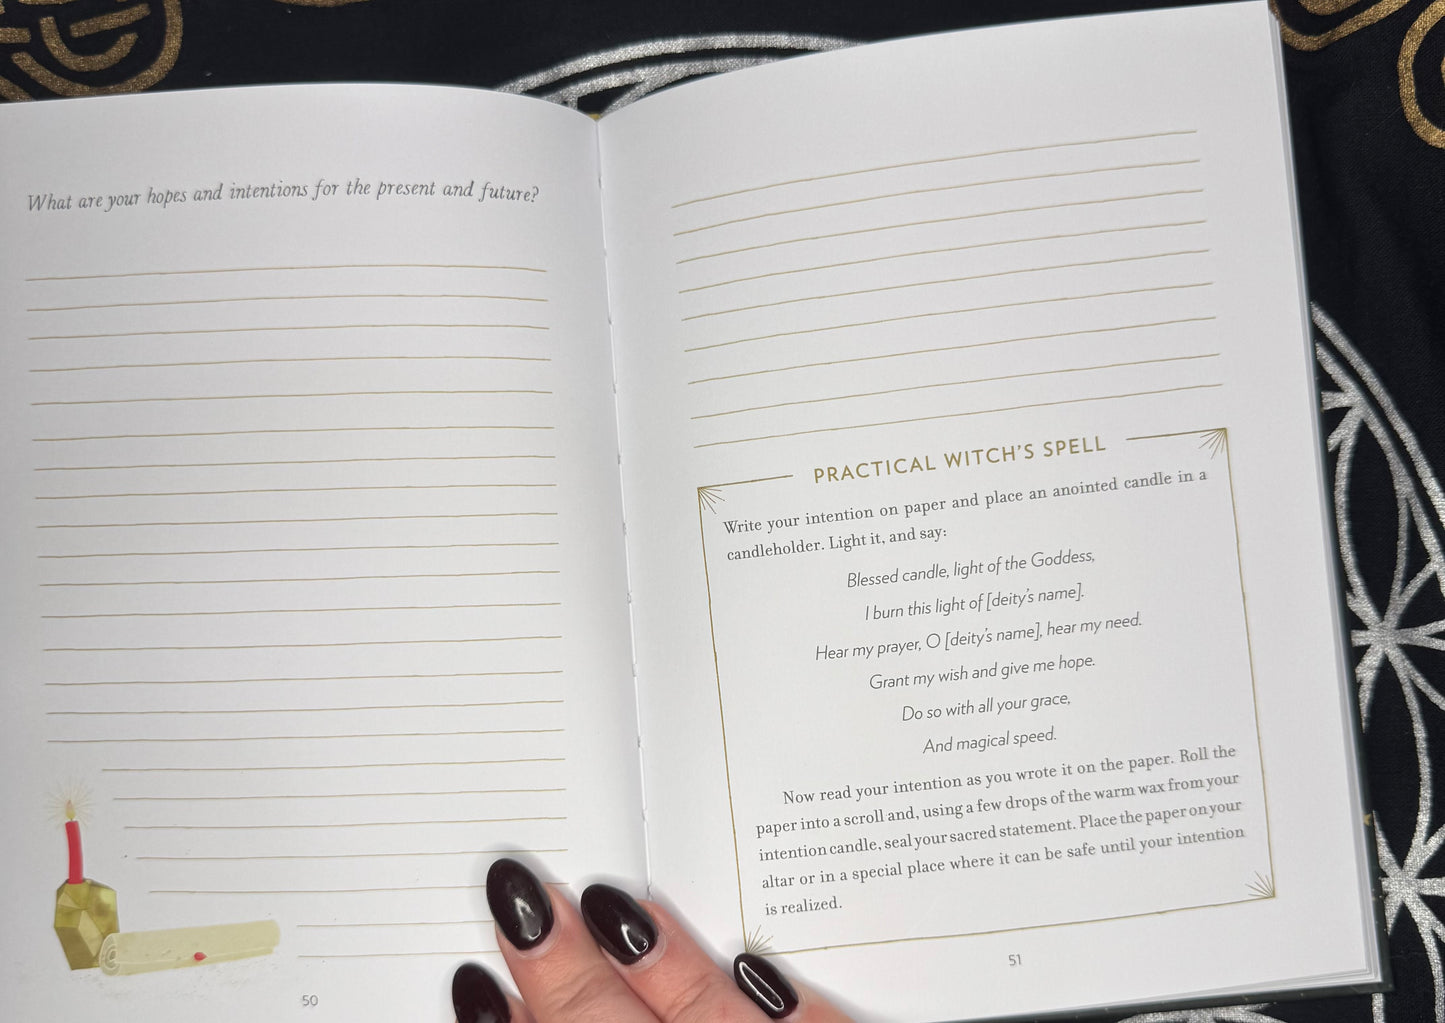 What are your hopes and intentions for the present and future?
50
PRACTICAL WITCH'S SPELL
Write your intention on paper and place an anointed candle in a
candleholder. Light it, and say:
Blessed candle, light of the Goddess,
I burn this light of [deity's name].
Hear my prayer, O [deity's name], hear my need.
Grant my wish and give me hope.
Do so with all your grace,
And magical speed.
Now read your intention as you wrote it on the paper. Roll the
paper into a scroll and, using a few drops of the warm wax from your
intention candle, seal your sacred statement. Place the paper on your
altar or in a special place where it can be safe until your intention
is realized.
51